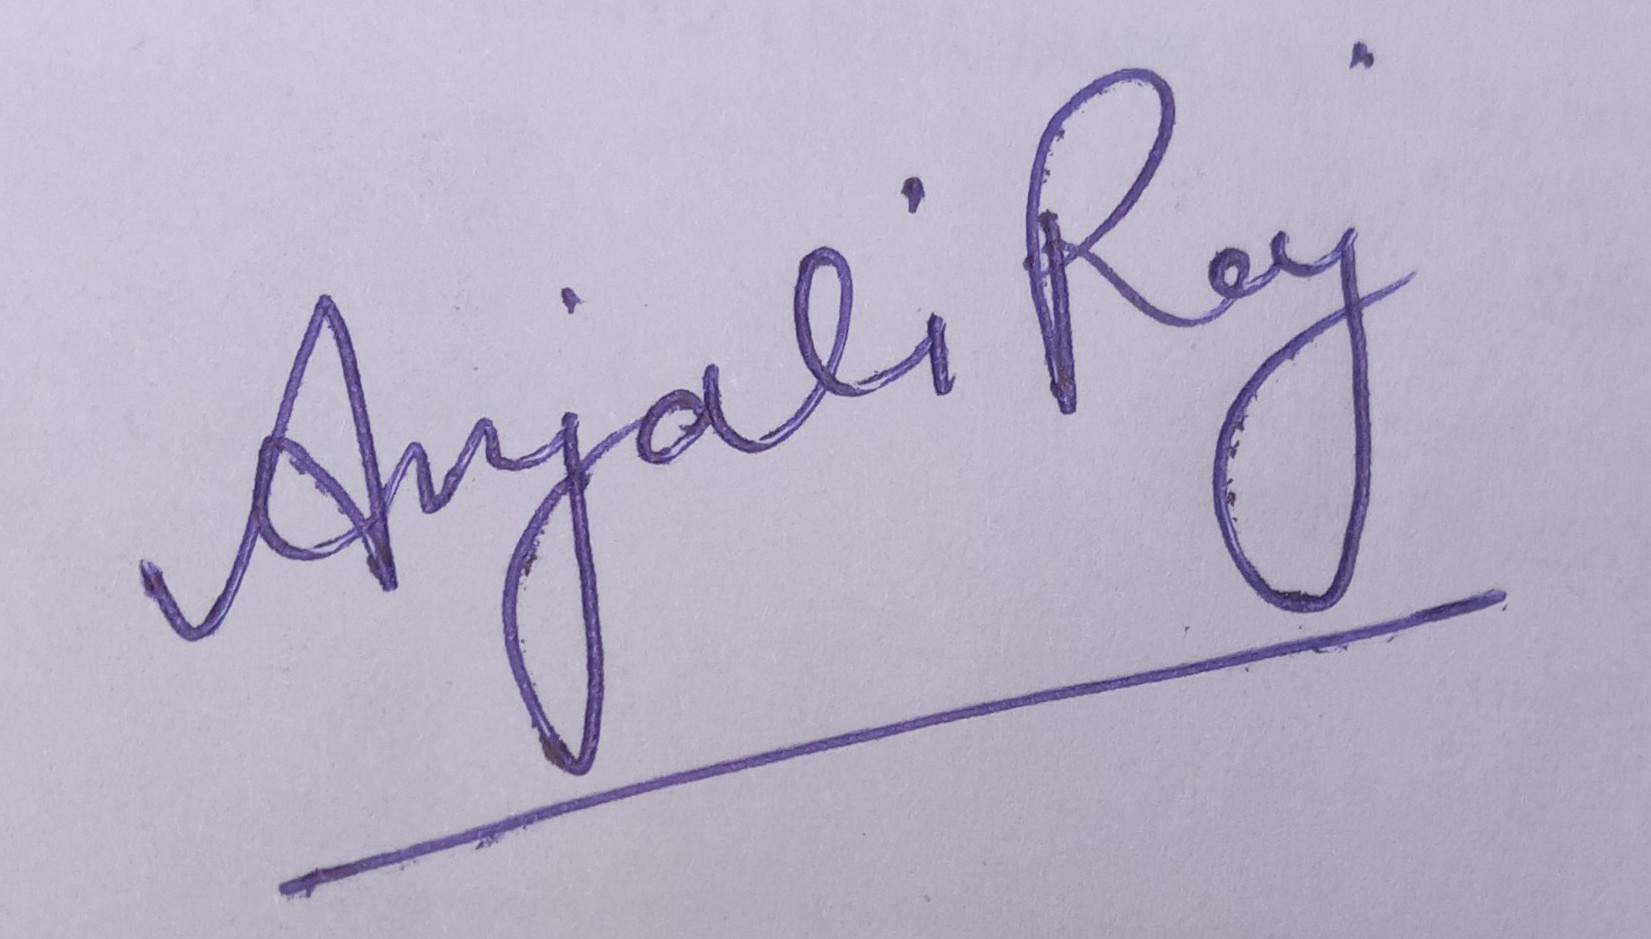 Anjali Raj